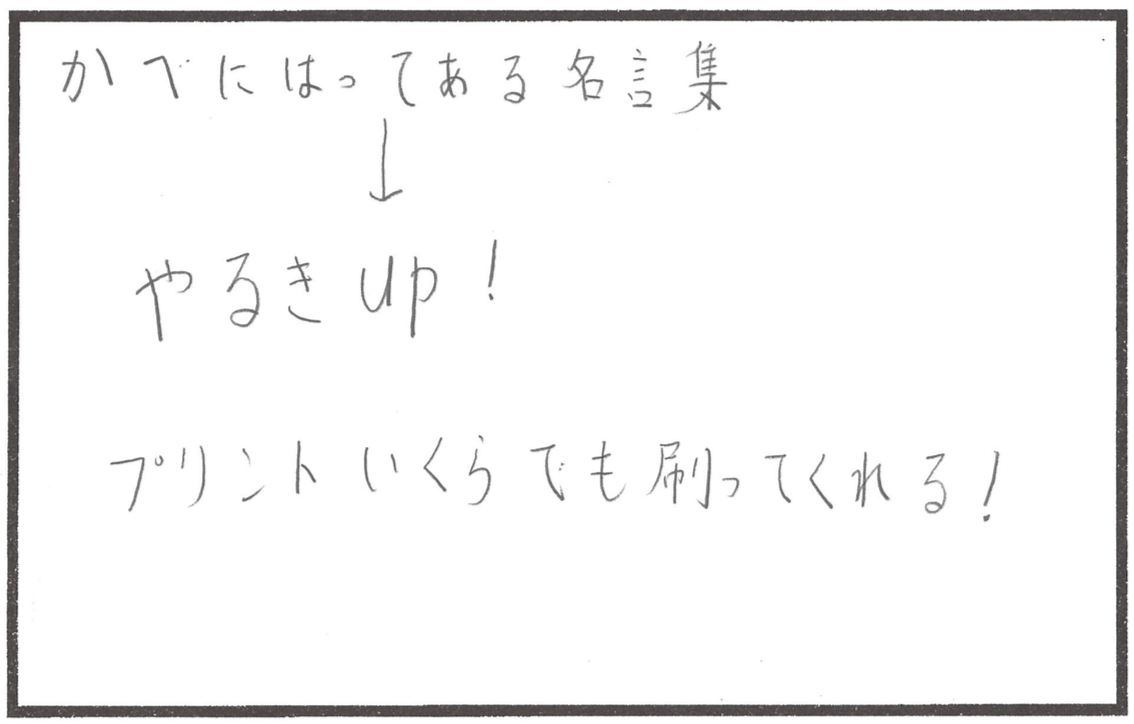 かべにはってある名言集
↓
やるきup!
プリントいくらでも刷ってくれる!